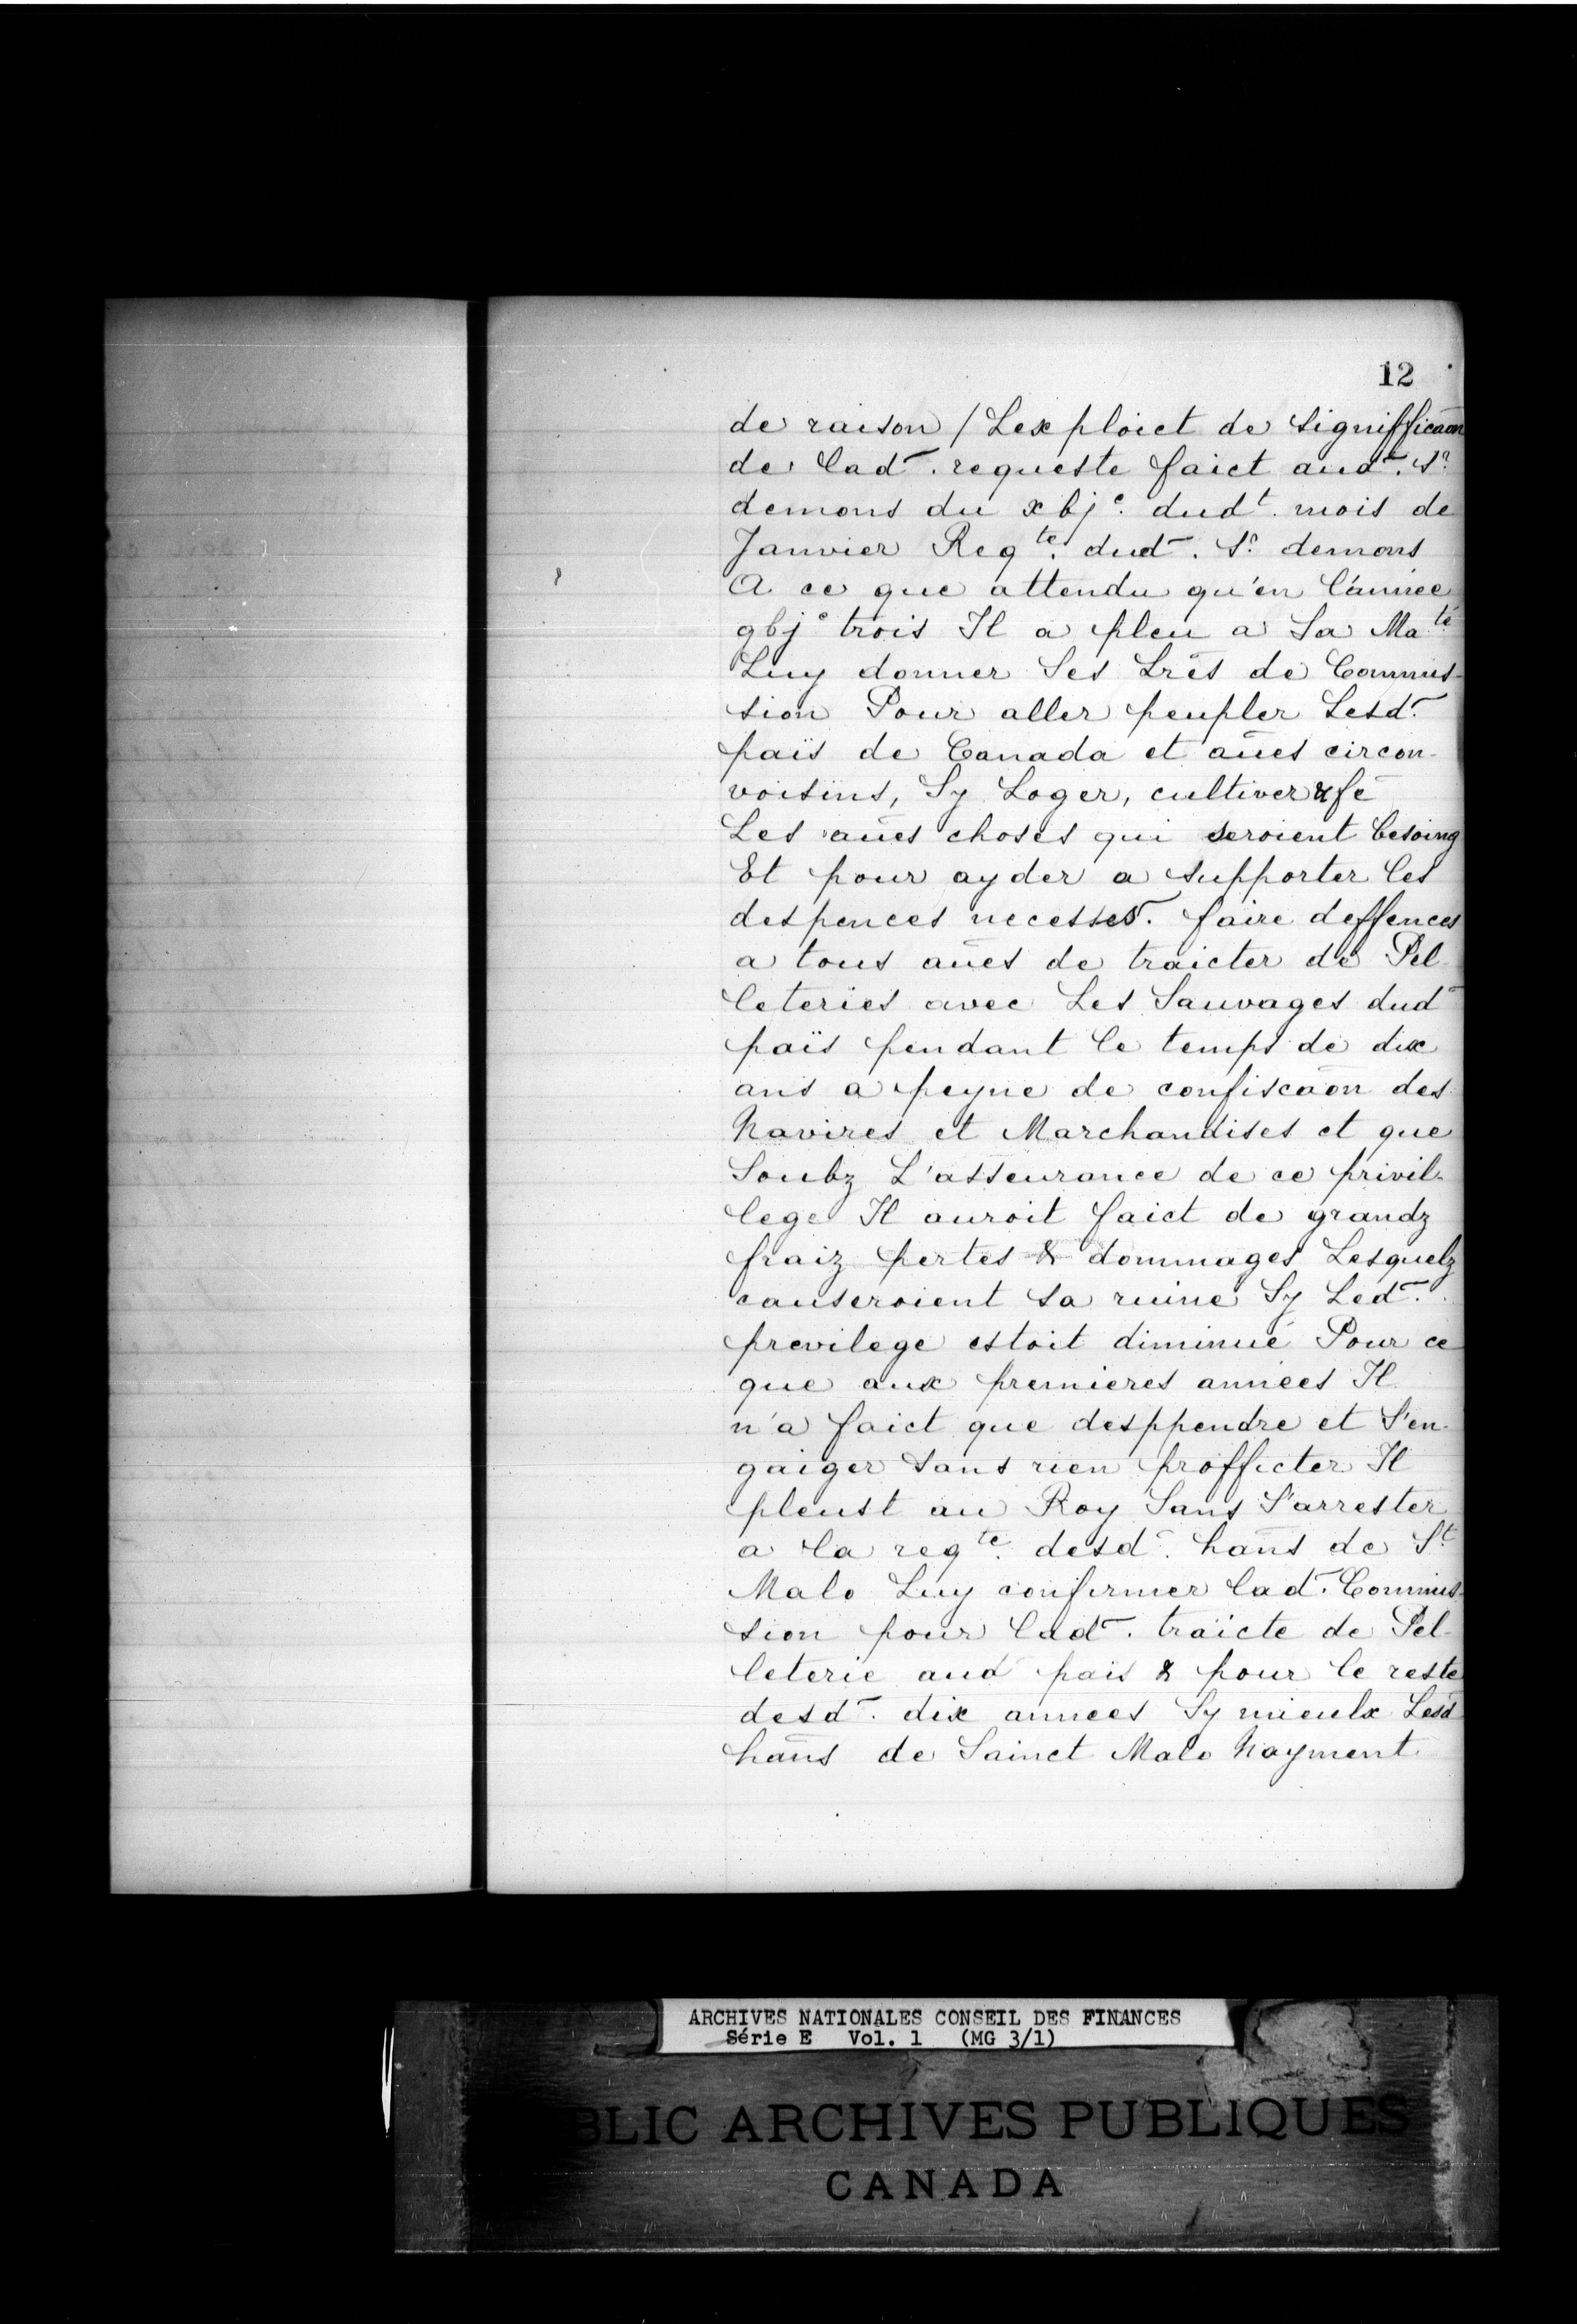 12
de raison / Lexploict de significaōn
de lad̄. requeste faict aud̄. Sr.
demons du xbje. dudt. mois de
Janvier Reqte. dud̄. Sr. demons
A ce que attendu qu'en l'année
gbje trois Il a pleu a Sa Maté
Luy donner Ses Lr̄es de Commis-
sion Pour aller peupler Lesd̄.
païs de Canada et aūes circon-
voisins, Sy Loger, cultiver & fē
Les aūes choses qui seroient besoing
Et pour ayder a supporter les
despences necesses̄. faire deffences
a tous aūes de traicter de Pel-
leteries avec Les Sauvages dud̄
païs pendant le temps de dix
ans a peyne de confiscaōn des
Navires et Marchandises et que
Soubz L'asseurance de ce privil-
lege Il auroit faict de grandz
fraiz pertes & dommages Lesquelz
causeroient sa ruine Sy Led̄.
previlege estoit diminué Pour ce
que aux premieres années Il
n'a faict que desppendre et S'en-
gaiger sans rien profficter Il
pleust au Roy Sans S'arrester
a la reqte. desd̄. hān̄s de St.
Malo Luy confirmer lad̄. Commis-
sion pour lad̄. traicte de Pel-
leterie aud̄ païs & pour le reste
desd̄. dix annees Sy mieulx Lesd̄
hān̄s de Sainct Malo Nayment
ARCHIVES NATIONALES CONSEIL DES FINANCES
Série E Vol. 1 (MG 3/1)
BLIC ARCHIVES PUBLIQUES
CANADA